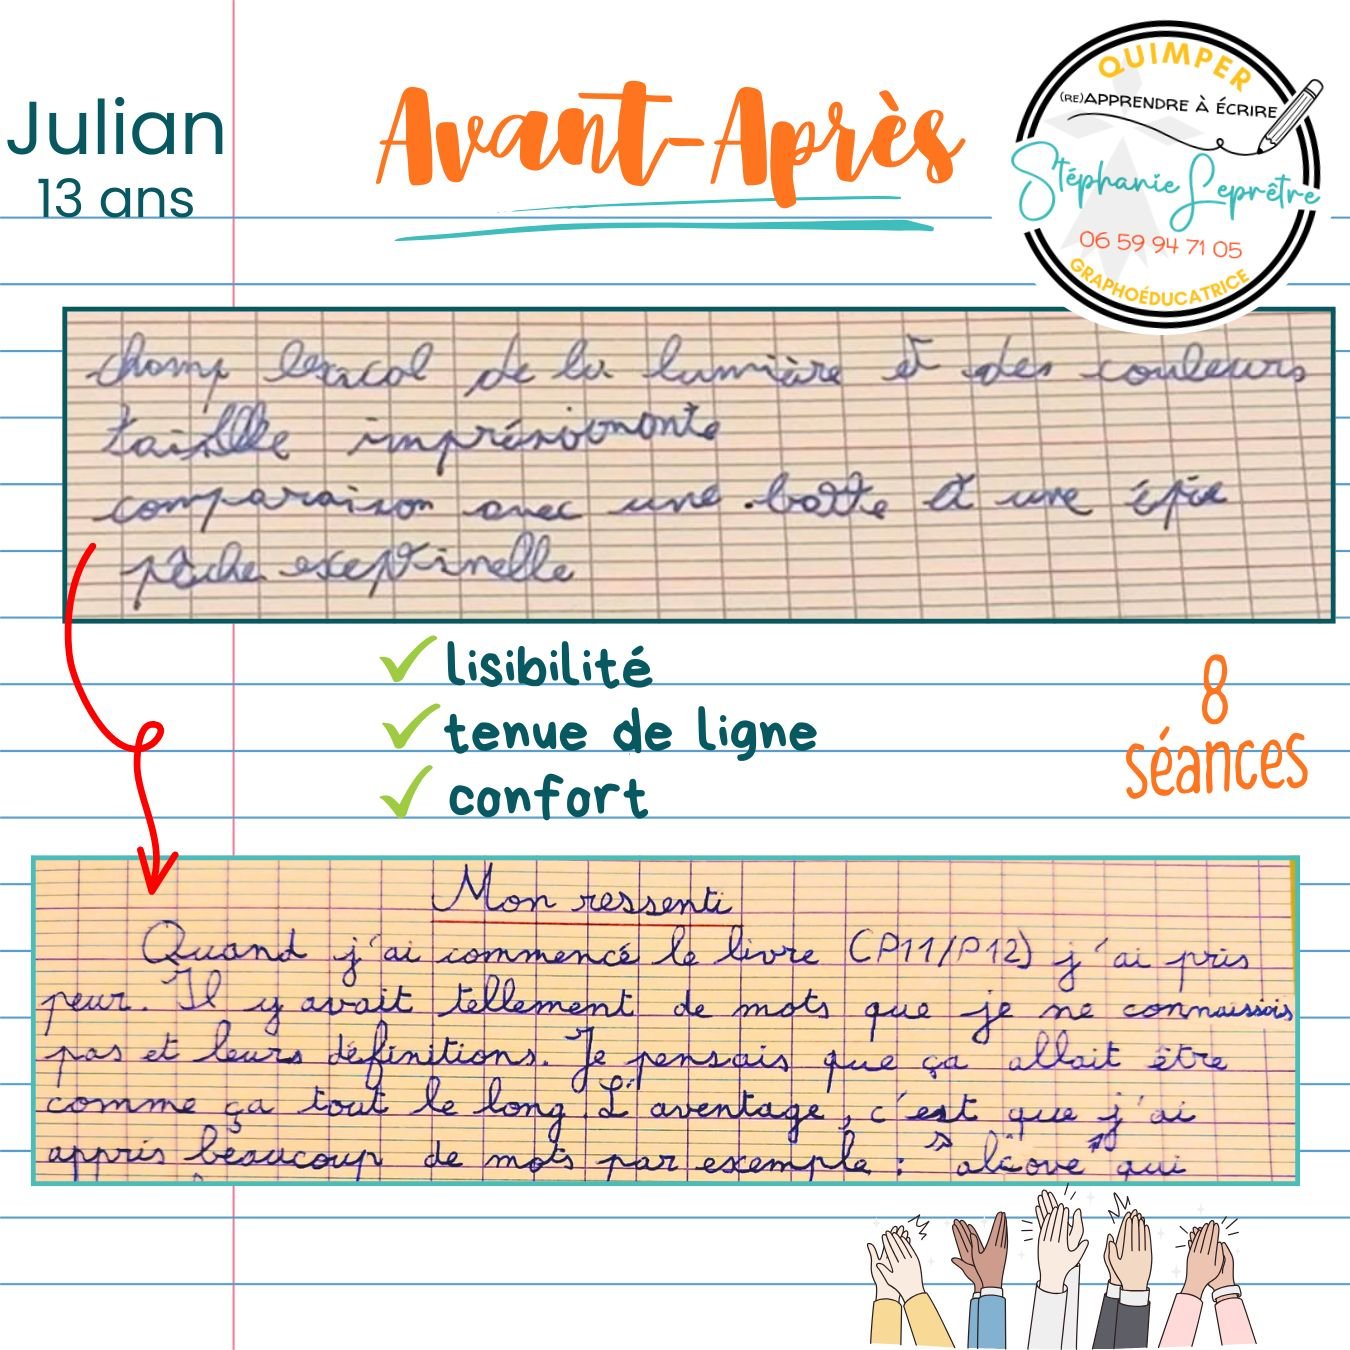 Julian
13 ans
Avant-Après
QUIMPER
(RE)APPRENDRE À ÉCRIRE
Stéphanie Leprêtre
06 59 94 71 05
GRAPHOÉDUCATRICE
champ lexical de la lumière et des couleurs
taille
comparaison avec une botte et une épée
pêche exceptinelle
lisibilité
tenue de ligne
confort
8
séances
Mon ressenti
Quand j'ai commencé le livre (P11/P12) j'ai pris
peur. Il y avait tellement de mots que je ne connaissais
pas et leurs définitions. Je pensais que ça allait être
comme ça tout le long. L'aventage, c'est que j'ai
appris beaucoup de mots par exemple : "alcove" qui